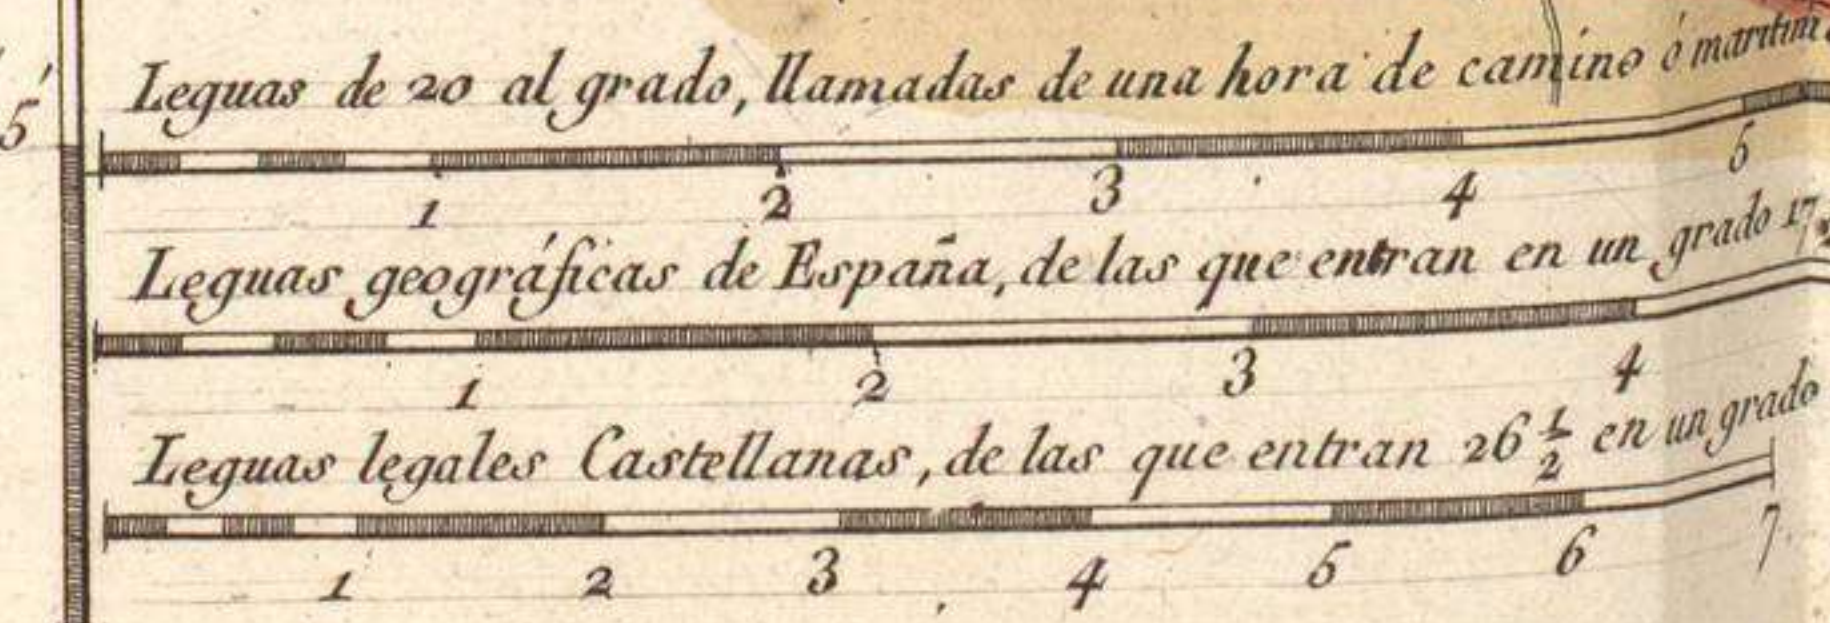 5'
Leguas de 20 al grado, llamadas de una hora de camino ó
1 2 3 4 5
Leguas geográficas de España, de las que entran en un grado 17
1 2 3 4
Leguas legales Castellanas, de las que entran 26 1/2 en un grado
1 2 3 4 5 6 7